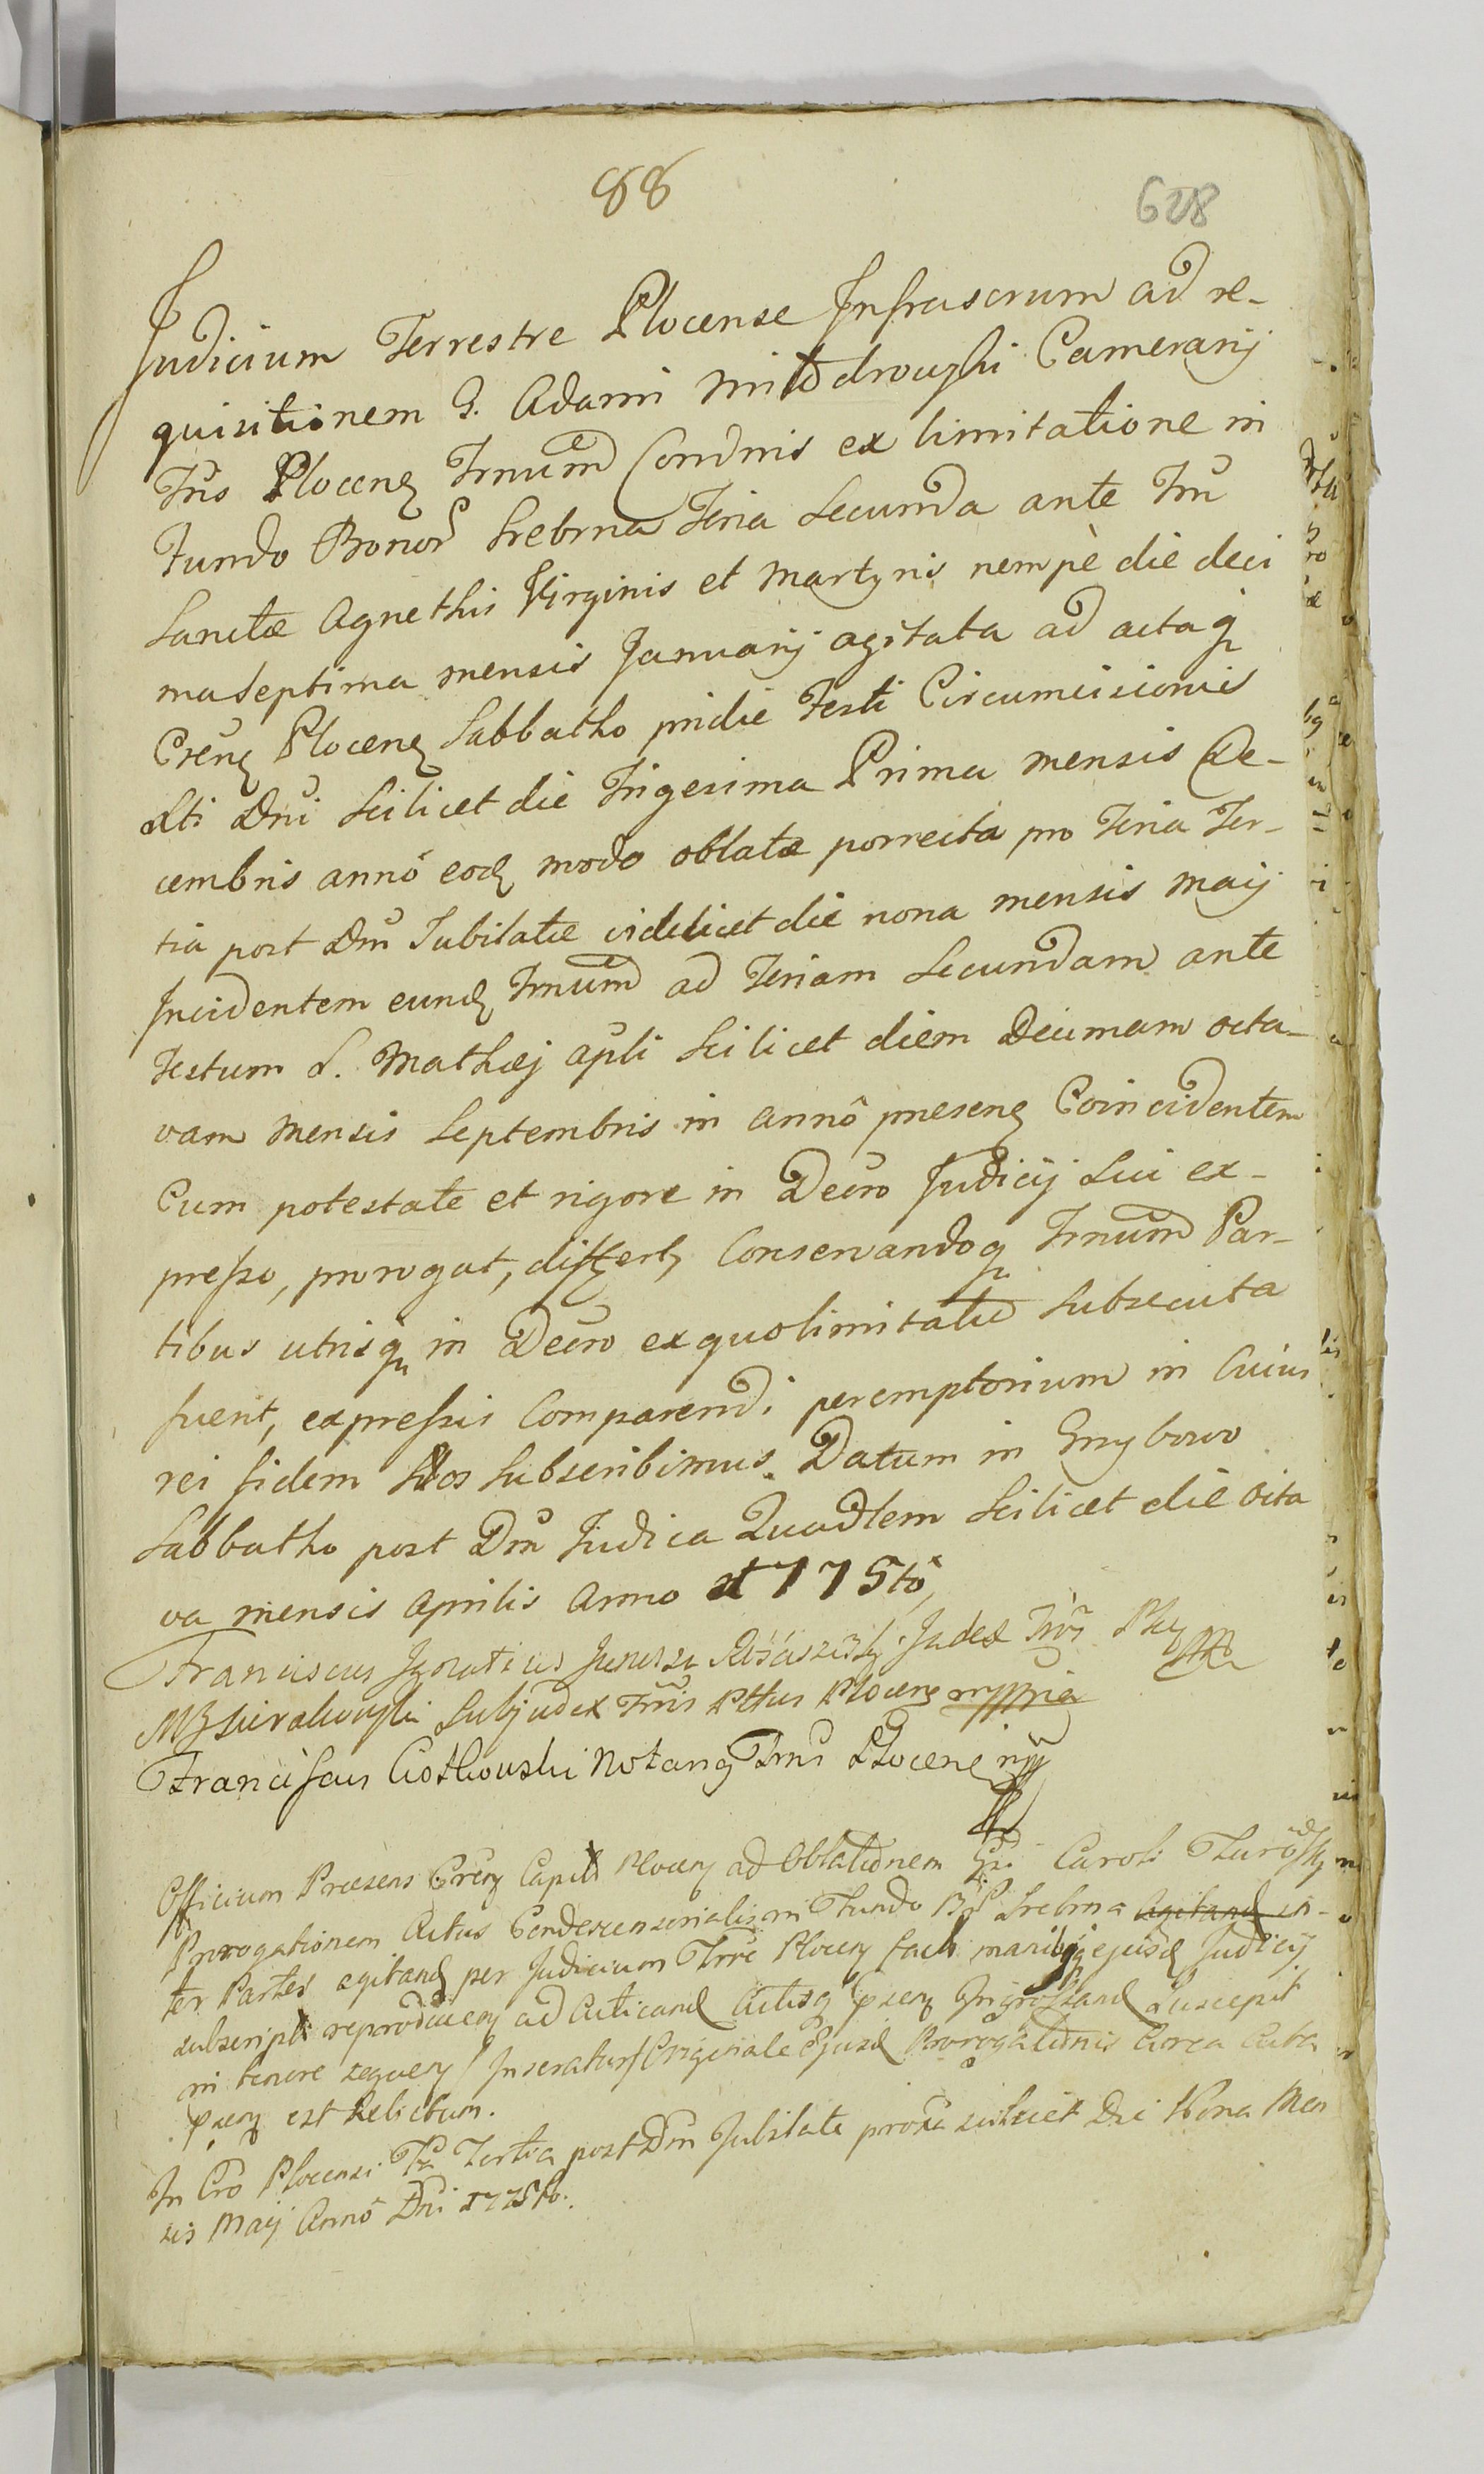 88
628
Judicium Terrestre Plocense Infrascrum ad re-
quisitionem G. Adami Camerarij
Trris Plocen Trnum Condnis ex limitatione in
Fundo Bonor Srebrna Feria Secunda ante Fru
Sanctæ Agnethis Virginis et Martyris nempè die deci
ma Septima mensis Januarij agitata ad actaq
Cren Plocen Sabbatho pridie Festi Circumcisionis
Xti Dni Scilicet die Trigesima Prima mensis De-
cembris annô eod modo oblatæ porrecta pro Feria Ter-
tia post Dni Jubilate videlicet die nona mensis Maij
Incidentem eund Trnum ad Feriam Secundam ante
Festum S. Mathæj Apli Scilicet diem Decimam octa-
vam mensis Septembris in annô præsen Coincidentem
Cum potestate et rigore in Decro Judicij Sui ex-
presso, prorogat, differt, Conservandoq Trnum Par-
tibus utrisq in Decro ex quo limitatio subsecuta
fuerit, expressis Comparendi peremptorium in Cuius
rei fidem Nos Subscribimus. Datum in
Sabbatho post Dni Judica Quadlem Scilicet die octa
va mensis Aprilis Anno 1775tô,
Franciscus Ignatius Judex
Subjudex Trris Plocen mppria
Franciscus Notarius Trris Plocen
Officium Præsens Cren Capit Plocen ad Oblationem Caroli
Prorogationem Actus Condescensorialis in Fundo Srebrna agitand in-
ter Partes agitand per Judicium Trre Plocen fact manibq ejusd Judicij
subscript reproducen ad Acticand Actisq Ingrossand Suscepit
in tenore sequen / Inseratur / Originale Ejusd Prorogationis Circa Acta
est Relictum.
In Cro Plocensi Tertia post Dni Jubilate proxa scilicet Die Nona Men
sis Maij Annô Dni 1775to.